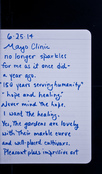 6·25·14
Mayo Clinic
no longer sparkles
for me as it once did -
a year ago.
"150 years serving humanity"
"hope and healing"
Never mind the hope.
I want the healing.
Yes, the gardens are lovely
with their marble curve
and well-placed cultivars.
Pleasant plaza improvises art